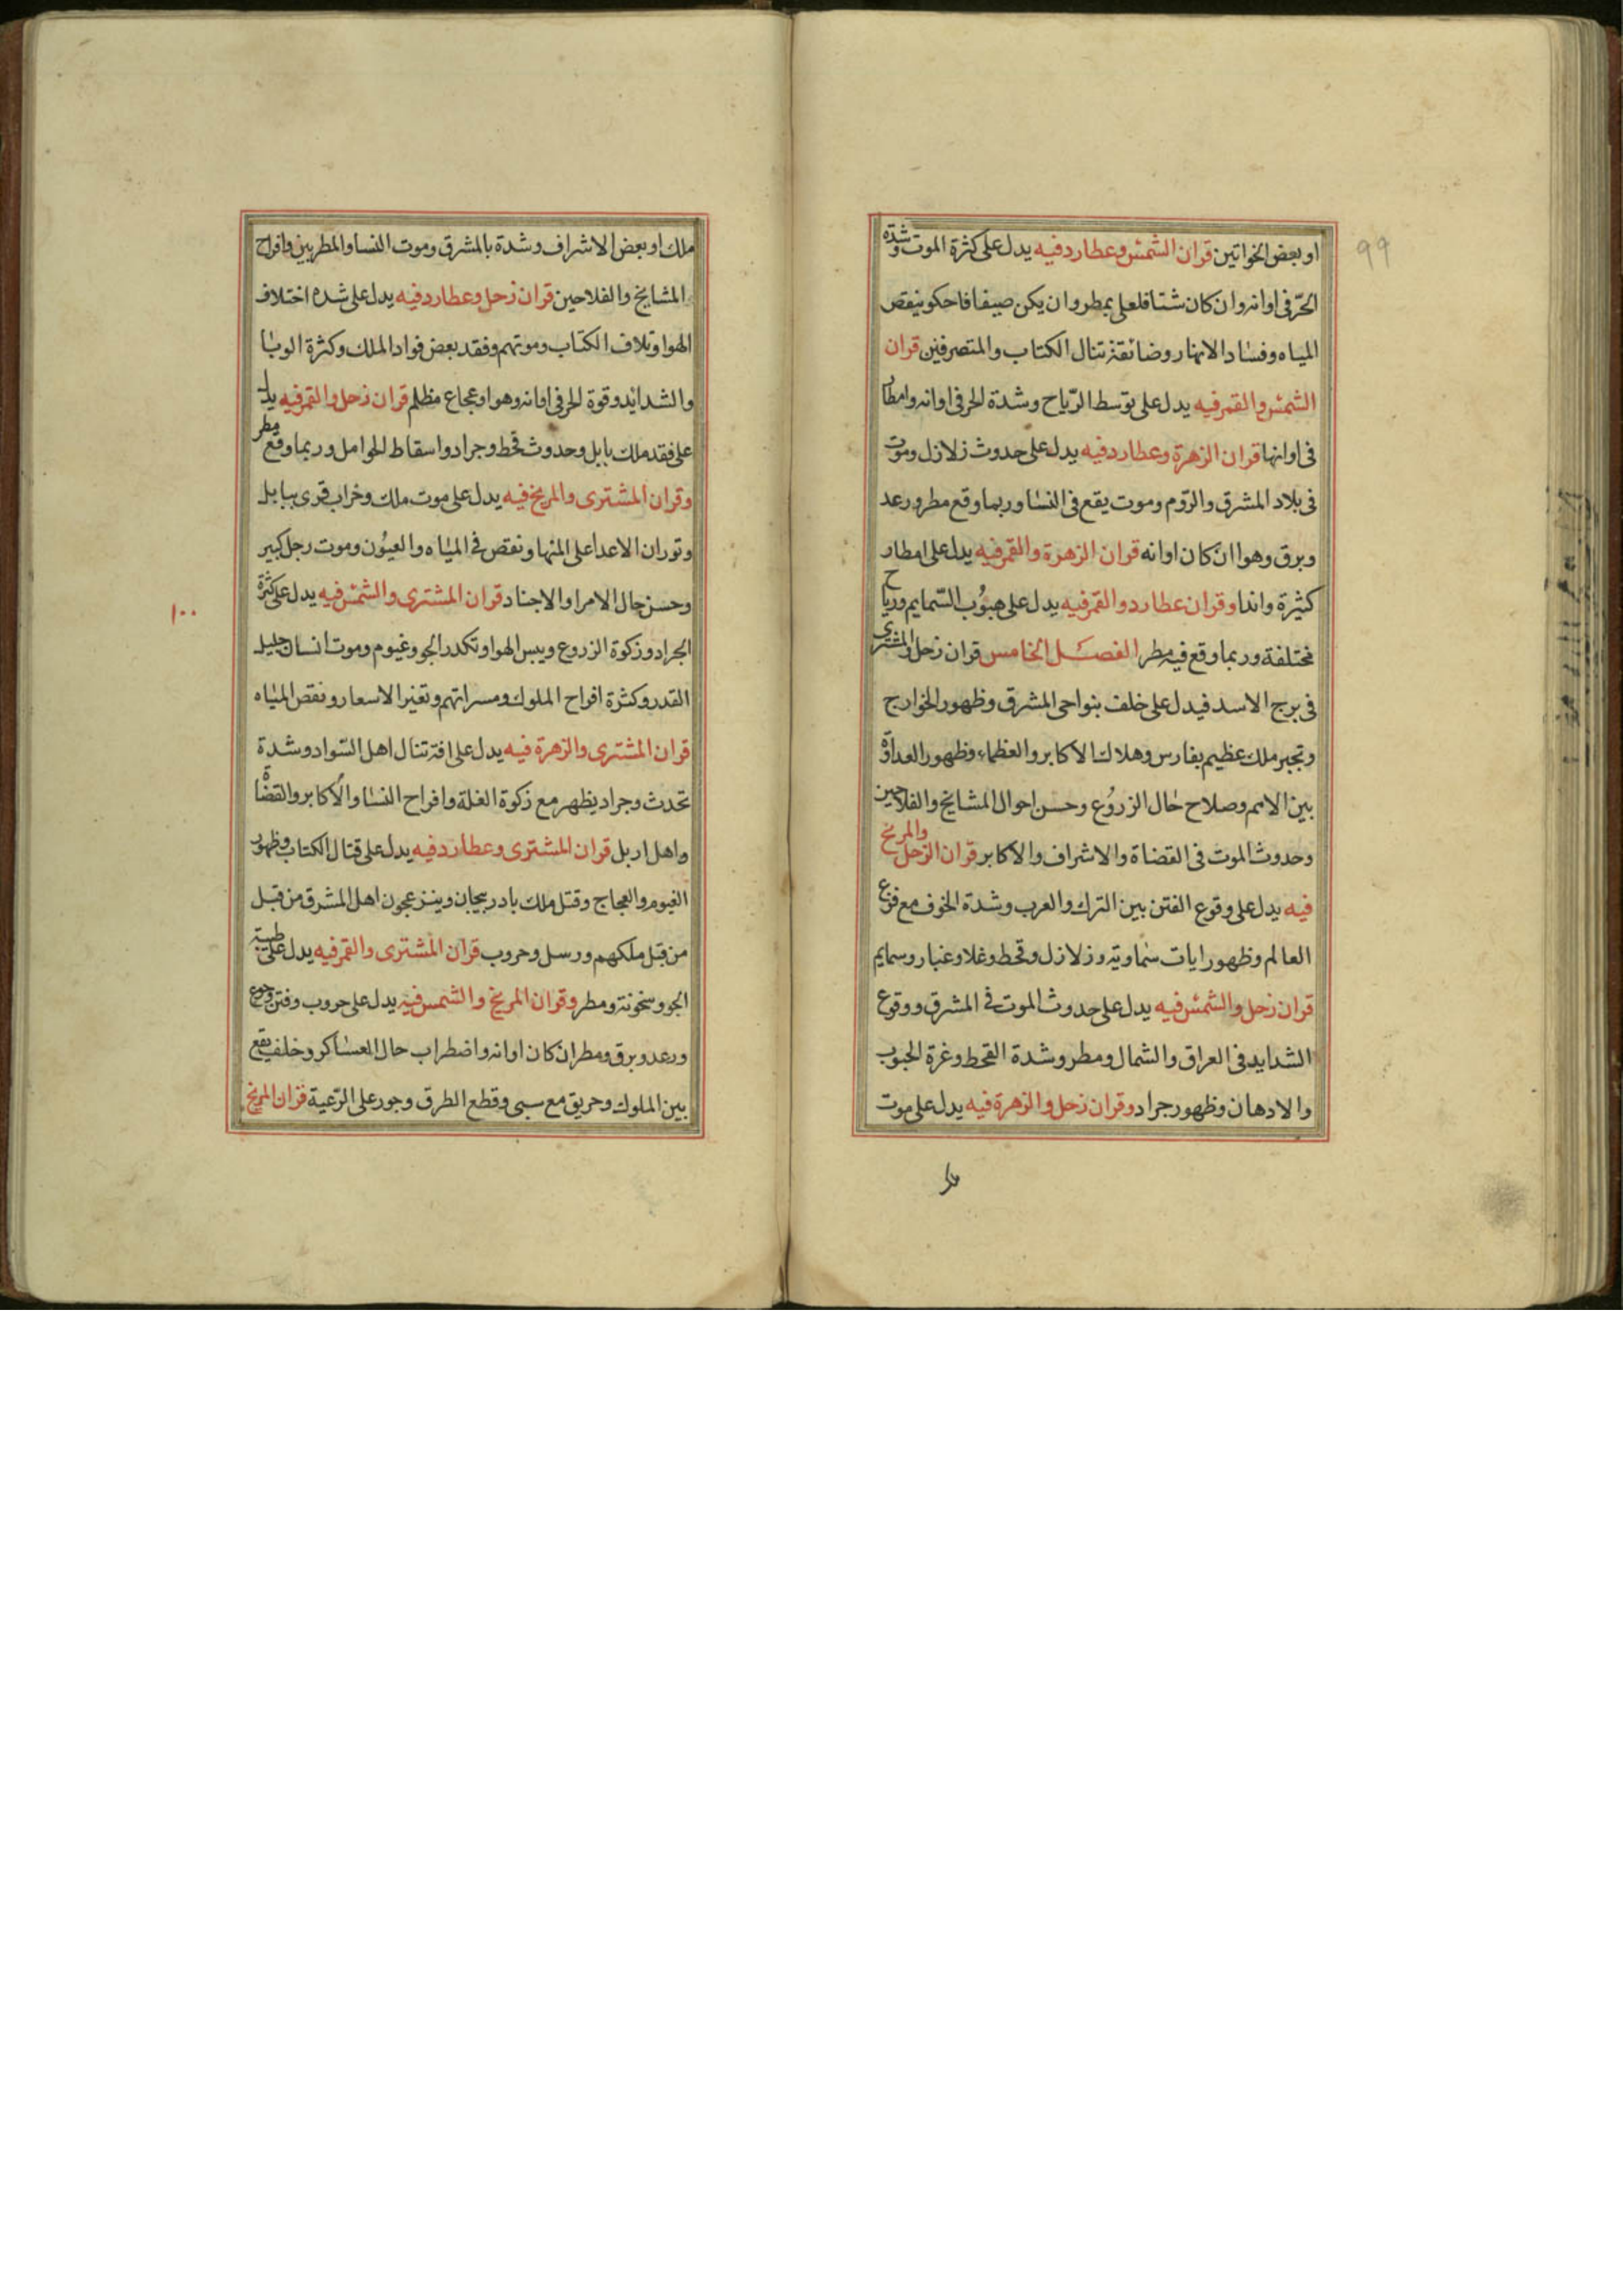 او بعض الخواتين قران الشمس وعطارد فيه يدل على كثرة الموت وشدة
الحرّ فى اوانه وان كان شتا فلعلى بمطر وان يكن صيفا فاحكو بنقص
المياه وفساد الانهار وضائقة تنال الكتاب والمتصرفين قران
الشمس والقمر فيه يدل على توسط الرّياح وشدة الحر فى اوانه وامطار
فى اوانها قران الزهرة وعطارد فيه يدل على حدوث زلازل وموت
فى بلاد المشرق والرّوم وموت يقع فى النسا وربما وقع مطر ورعد
وبرق وهوا ان كان اوانه قران الزهرة والقمر فيه يدل على امطار
كثيرة واندا وقران عطارد والقمر فيه يدل على هبوب السّمايم ورياح
مختلفة وربما وقع فيه مطر الفصل الخامس قران زحل والمشترى
فى برج الاسد فيدل على خلف بنواحى المشرق وظهور الخوارج
وتجبر ملك عظيم بفارس وهلاك الاكابر والعظماء وظهور العداوة
بين الامم وصلاح حال الزروع وحسن احوال المشايخ والفلاحين
وحدوث الموت فى القضاة والاشراف والاكابر قران الزحل والمريخ
فيه يدل على وقوع الفتن بين الترك والعرب وشدة الخوف مع فزع
العالم وظهور ايات سماوية وزلازل وقحط وغلا وغبار وسمايم
قران زحل والشمس فيه يدل على حدوث الموت فى المشرق ووقوع
الشدايد فى العراق والشمال ومطر وشدة القحط وغرة الحبوب
والادهان وظهور جراد وقران زحل والزهرة فيه يدل على موت
99
ملك او بعض الاشراف وشدة بالمشرق وموت النسا والمطربين وافراح
المشايخ والفلاحين قران زحل وعطارد فيه يدل على شده اختلاف
الهوا وتلاف الكتاب وموتهم وفقد بعض فواد الملك وكثرة الوبا
والشدايد وقوة الحر فى اوانه وهوا وعجاع مظلم قران زحل والقمر فيه يدل
على فقد ملك بابل وحدوث قحط وجراد واسقاط الحوامل وربما وقع مطر
وقران المشترى والمريخ فيه يدل على موت ملك وخراب قرى ببابل
وثوران الاعدا على المنها ونقص فى المياه والعيون وموت رجل كبير
وحسن حال الامرا والاجناد قران المشترى والشمس فيه يدل على كثرة
الجراد وزكوة الزروع ويبس الهوا وتكدر الجو وغيوم وموت انسان جليل
القدر وكثرة افراح الملوك ومسراتهم وتغير الاسعار ونقص المياه
قران المشترى والزهرة فيه يدل على افتر تنال اهل السّواد وشدة
تحدث وجراد يظهر مع زكوة الغلة وافراح النسا والاكابر والقضاة
واهل اربل قران المشترى وعطارد فيه يدل على قتال الكتاب وظهور
الغيوم والعجاج وقتل ملك بادربيجان وينزعجون اهل المشرق من قبل
من قبل ملكهم ورسل وحروب قران المشترى والقمر فيه يدل على طيبة
الجو وسخونة ومطر وقران المريخ والشمس فيه يدل على حروب وفتن وجوع
ورعد وبرق ومطر ان كان اوانه واضطراب حال العساكر وخلف يقع
بين الملوك وحريق مع سبى وقطع الطرق وجور على الرّعية قران المريخ
١٠٠